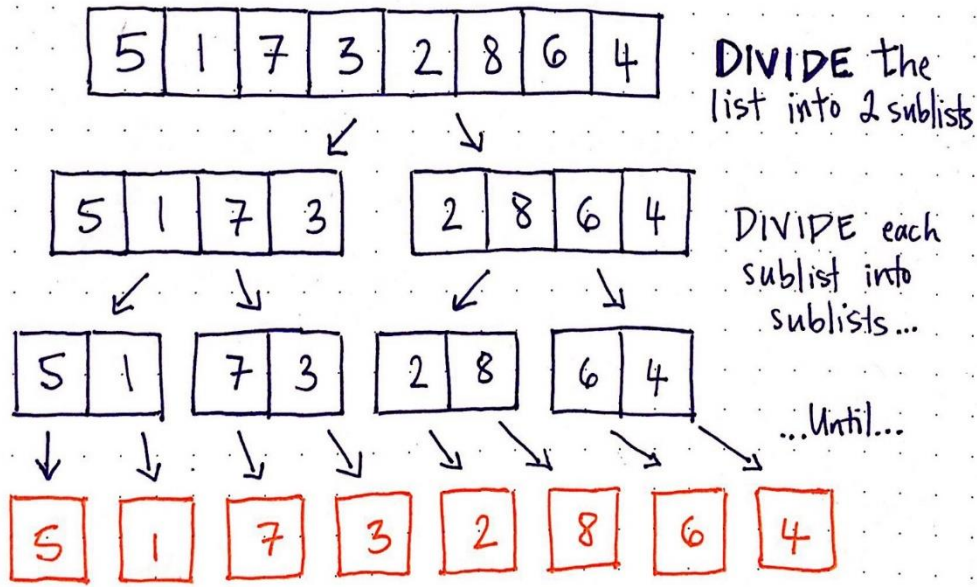 5 1 7 3 2 8 6 4
DIVIDE the
list into 2 sublists
5 1 7 3
2 8 6 4
DIVIDE each
sublist into
sublists...
5 1
7 3
2 8
6 4
...Until...
5
1
7
3
2
8
6
4